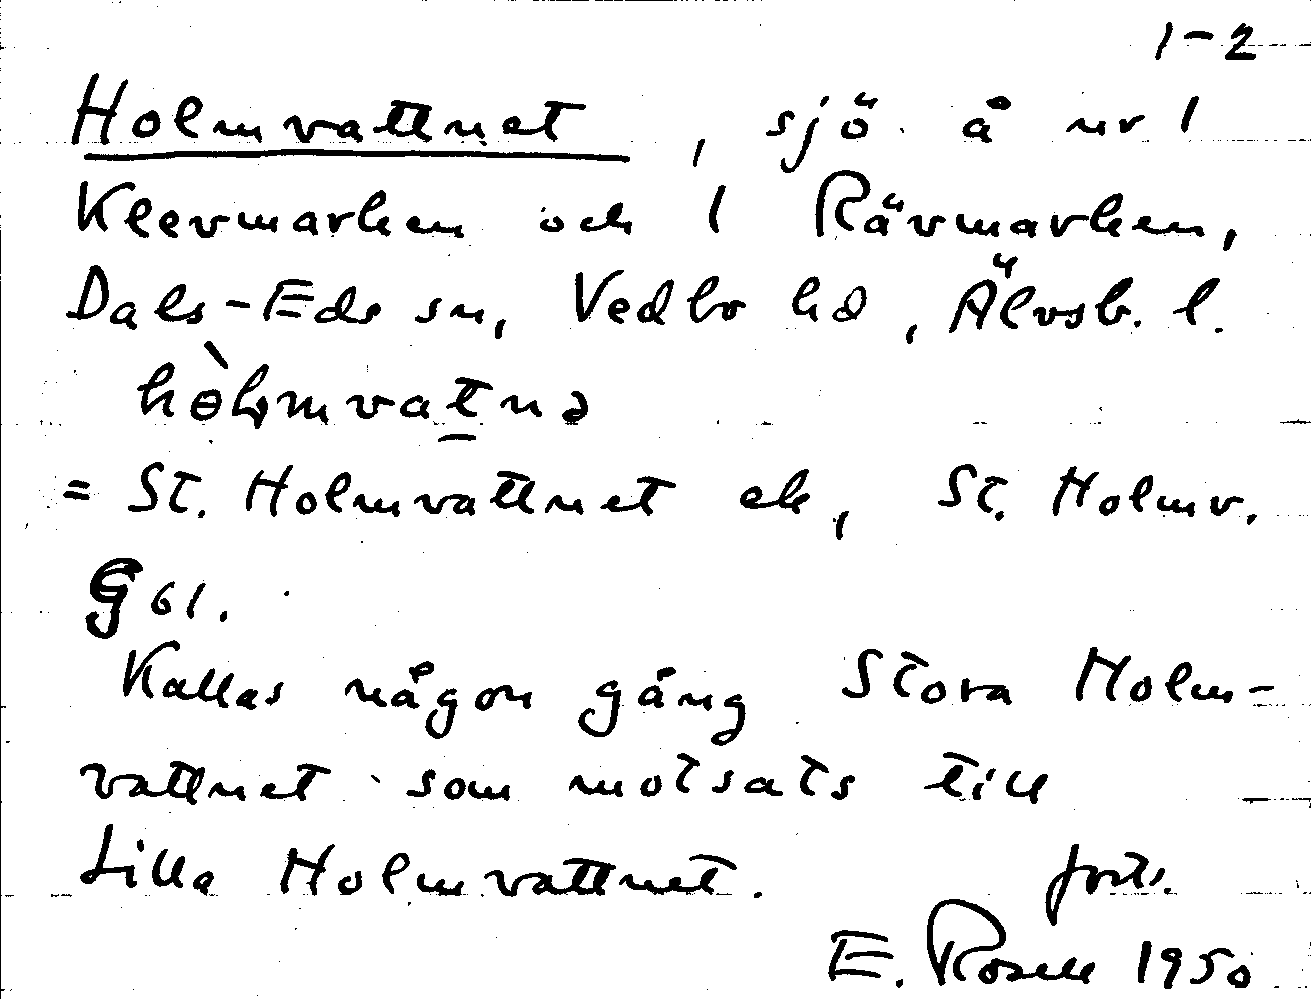 1-2
Holmvattnet, sjö å nr 1
Klevmarken och 1 Rävmarken,
Dals-Eds sn, Vedbo hd, Älvsb. l.
= St. Holmvattnet ek, St. Holmv.
G 61.
Kallas någon gång Stora Holm-
vattnet som motsats till
Lilla Holmvattnet. forts.
E. Rosell 1950